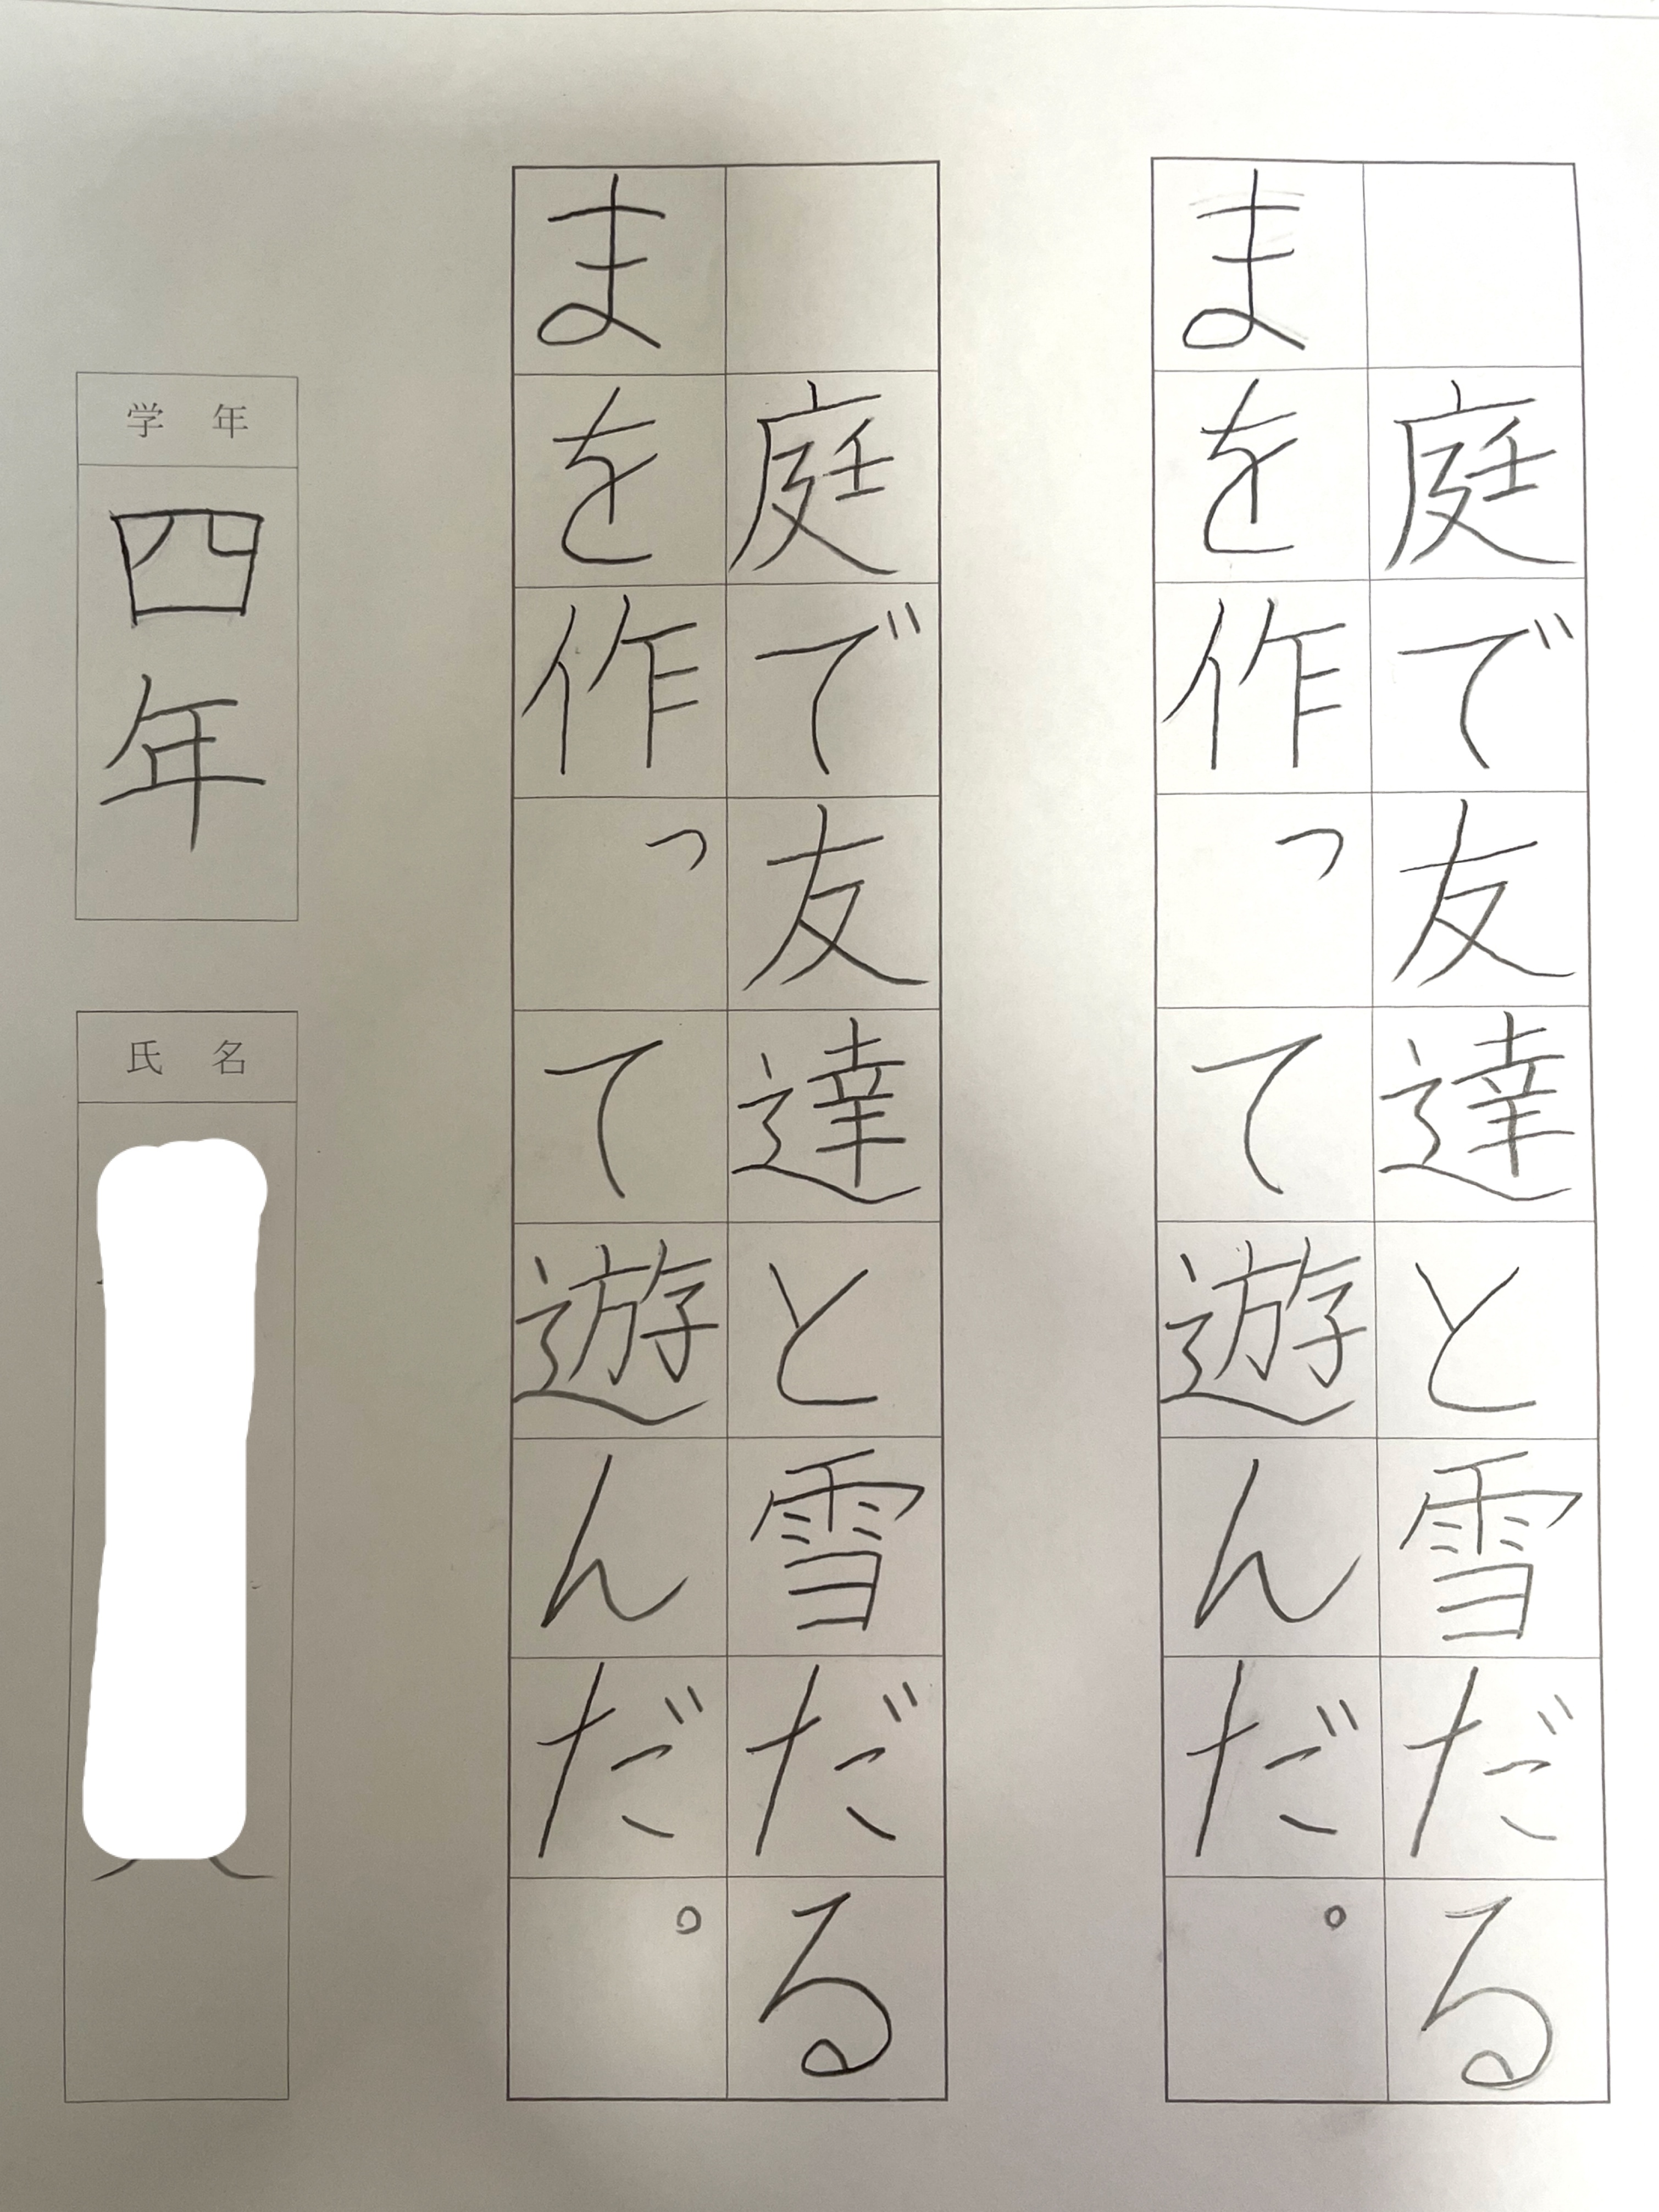 庭で友達と雪だる
まを作って遊んだ。
庭で友達と雪だる
まを作って遊んだ。
学年
四年
氏名